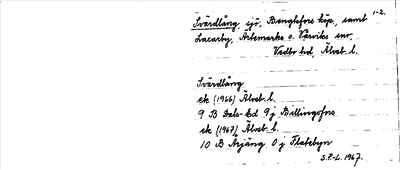 1-2.
Svärdlång, sjö, Bengtsfors köp., samt
Lacarby, Årtemarks o. Varviks snr,
Vedbo hd, Älvsb. l.
Svärdlång
ek (1966) Älvsb. l.
9 B Dals-Ed 9 j Billingsfors
ek (1967) Älvsb. l.
10 B Årjäng 0 j Flatebyn
S.P.-L. 1967.